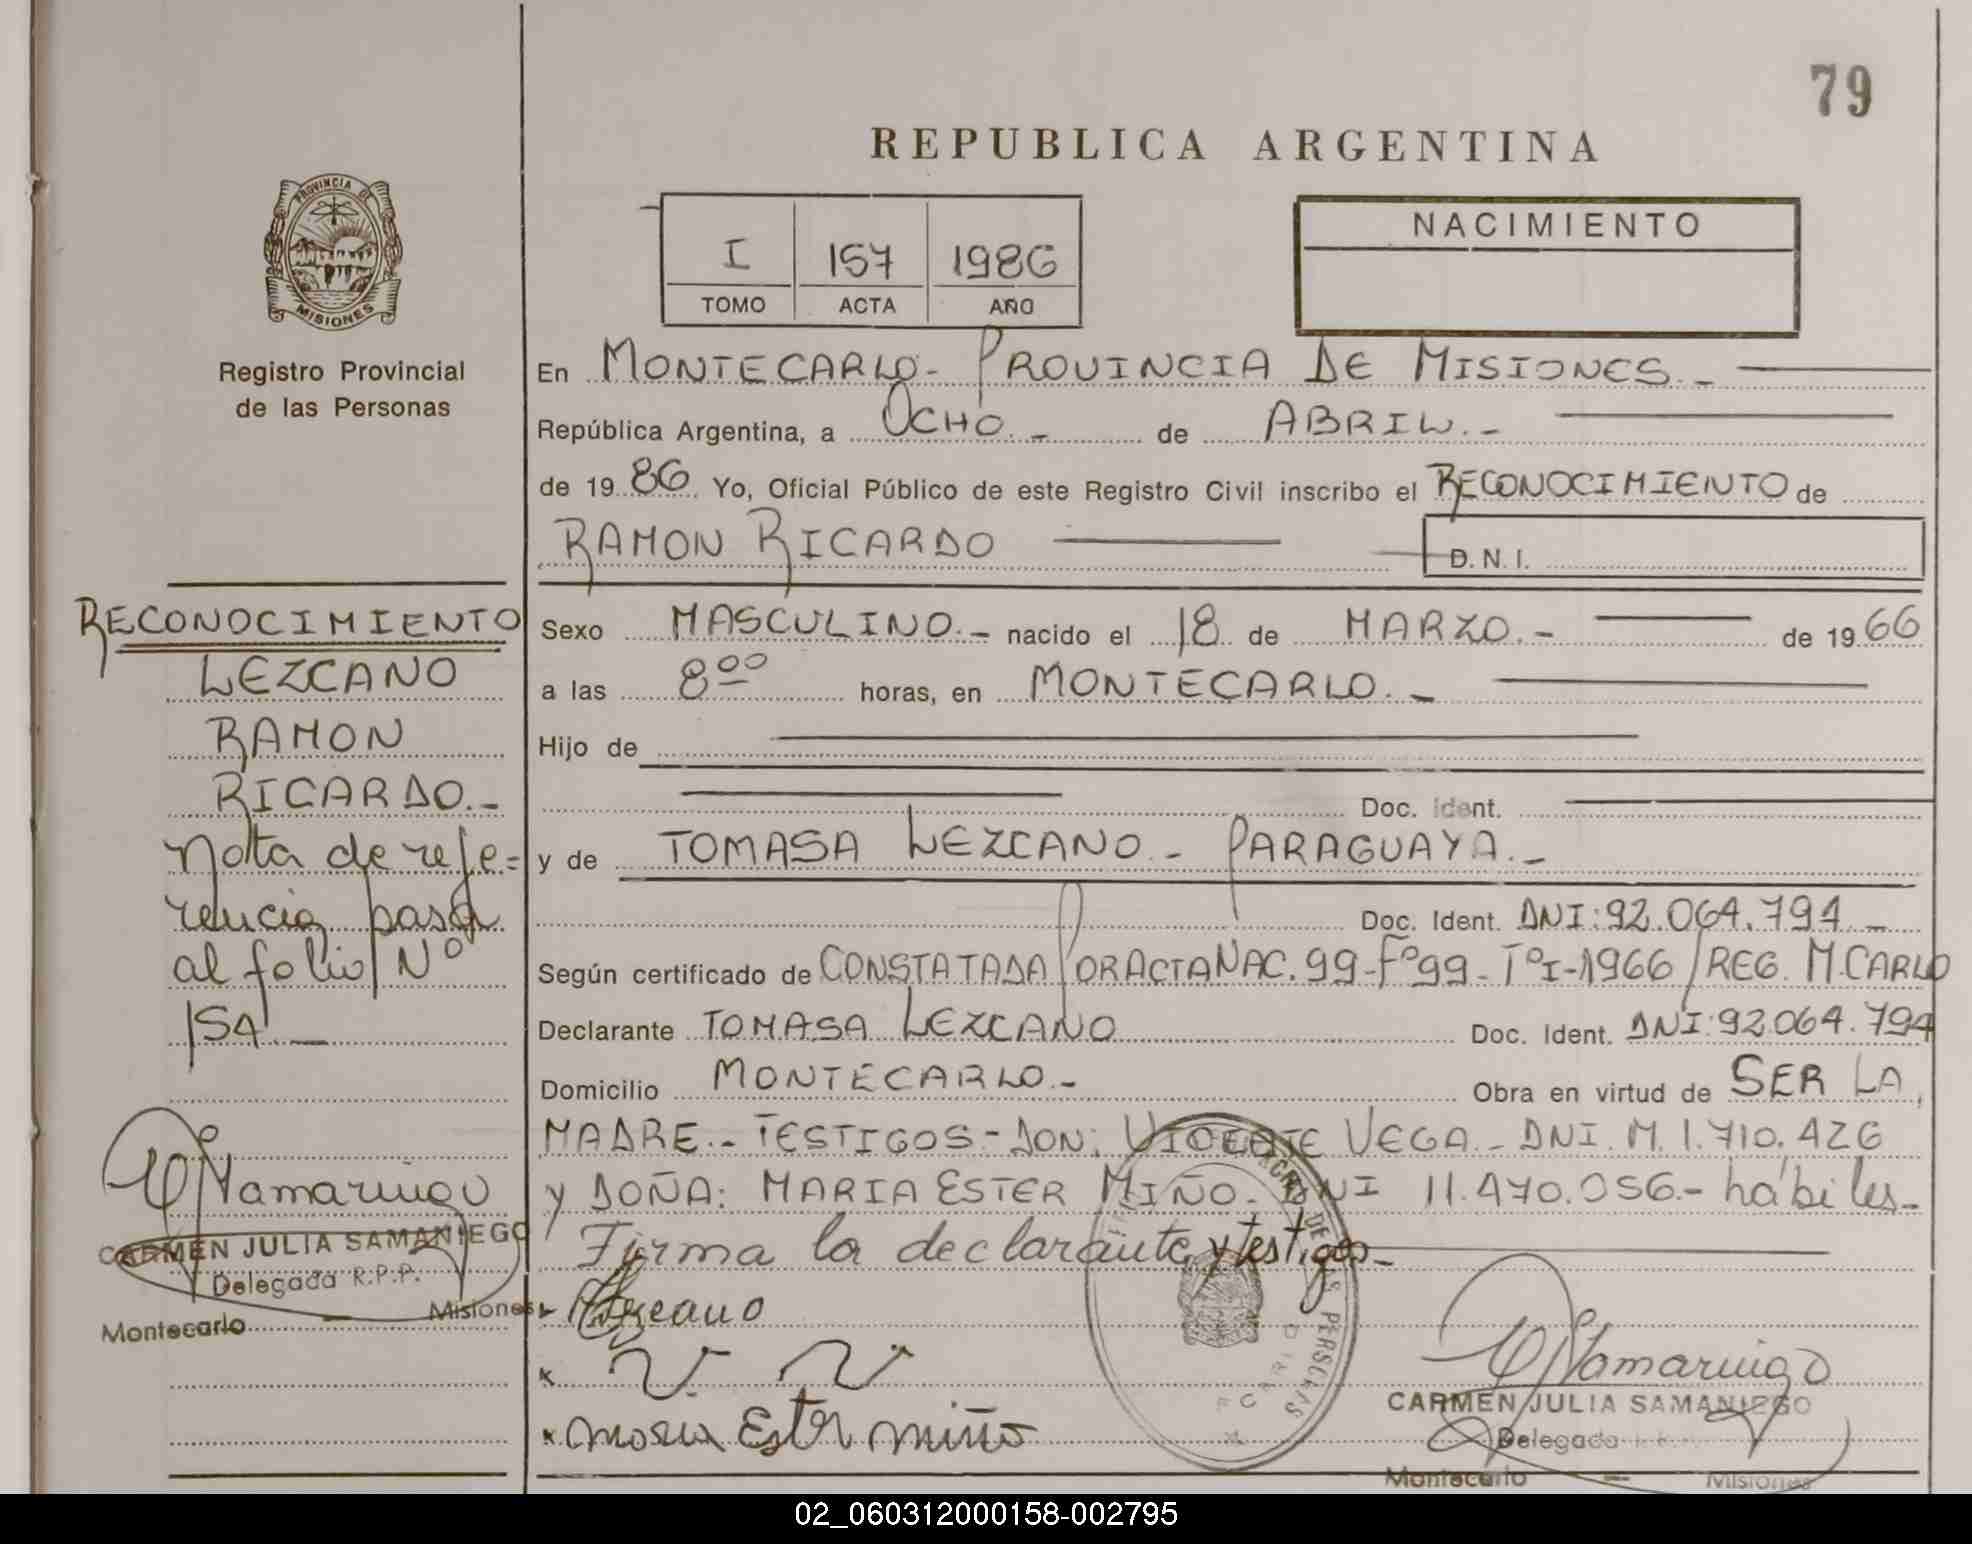 79
REPUBLICA ARGENTINA
PROVINCIA DE
MISIONES
Registro Provincial
de las Personas
I 157 1986
TOMO ACTA AÑO
NACIMIENTO
En MONTECARLO.- PROVINCIA DE MISIONES.-
República Argentina, a OCHO.- de ABRIL.-
de 1986 Yo, Oficial Público de este Registro Civil inscribo el RECONOCIMIENTO de
RAMON RICARDO D.N.I.
RECONOCIMIENTO
LEZCANO
RAMON
RICARDO.-
Nota de refe=
rencia pasa
al folio Nº
154.-
CARMEN JULIA SAMANIEGO
Delegada R.P.P.
Montecarlo - Misiones
Sexo MASCULINO.- nacido el 18 de MARZO.- de 1966
a las 8⁰⁰ horas, en MONTECARLO.-
Hijo de
Doc. Ident.
y de TOMASA LEZCANO.- PARAGUAYA.-
Doc. Ident. DNI:92.064.794.-
Según certificado de CONSTATADA POR ACTA NAC. 99-Fº99-TºI-1966/REG. M.CARLO
Declarante TOMASA LEZCANO Doc. Ident. DNI:92.064.794
Domicilio MONTECARLO.- Obra en virtud de SER LA
MADRE.- TESTIGOS-DON: VICENTE VEGA.- DNI. M. 1.710.426
y DOÑA: MARIA ESTER MIÑO.- DNI 11.470.056.- hábiles.-
Firma la declarante y testigos.-
Lezcano
x V. V
x Maria Ester miño
CARMEN JULIA SAMANIEGO
Delegada
Montecarlo - Misiones
02_060312000158-002795